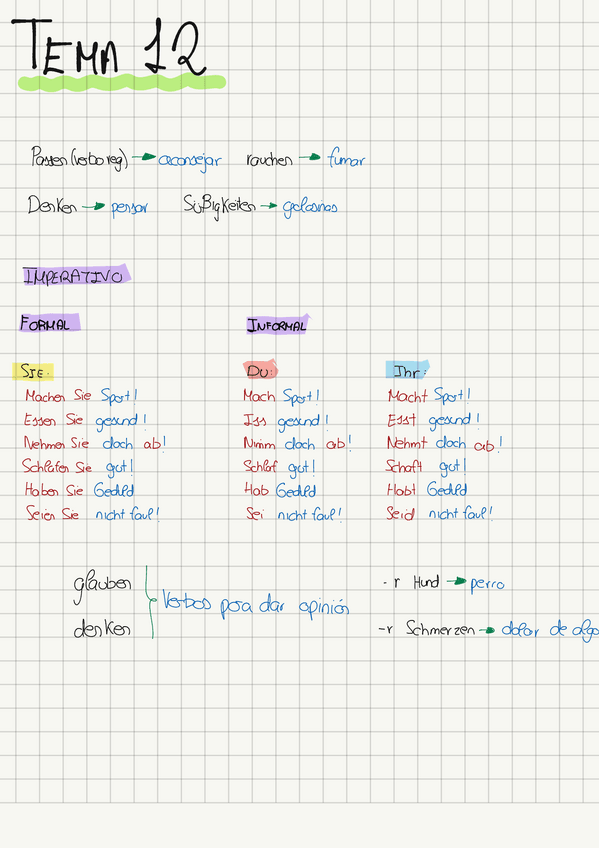 TEMA 12
Passen (verbo reg) → aconsejar rauchen → fumar
Denken → pensar Süßigkeiten → golosinas
IMPERATIVO
FORMAL INFORMAL
SIE: Du: Ihr:
Machen Sie Sport! Mach Sport! Macht Sport!
Essen Sie gesund! Iss gesund! Esst gesund!
Nehmen Sie doch ab! Nimm doch ab! Nehmt doch ab!
Schlafen Sie gut! Schlaf gut! Schaft gut!
Haben Sie Geduld Hab Geduld Habt Geduld
Seien Sie nicht faul! Sei nicht faul! Seid nicht faul!
glauben - r Hund → perro
Verbos para dar opinión
denken -r Schmerzen → dolor de algo